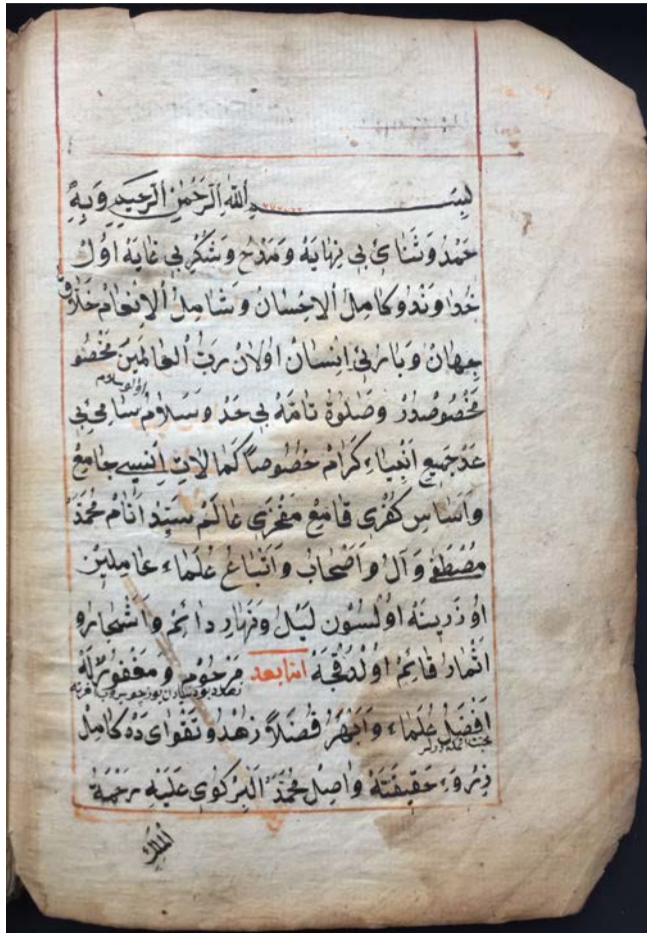 بِسْــــمِ اللهِ الرَّحْمٰنِ الرَّحِيمِ وَبِهِ
حَمْد وَثَنَائِ بِى نِهَايَه وَمَدْح وَشُكْرِ بِى غَايَه اوُلْ
خُداوَنْد وكَامِلُ الاِحْسَان وَشَامِلُ الاِنْعَامْ خَلَّاقِ
جِهَانْ وَبَارِئِ اِنْسَانْ اوُلَانْ رَبُّ الْعَالَمِينَ مَخْصُو
مَخْصُوصْدُرْ وَصَلٰوةِ تَامَّهُ بِى حَدْ وَسَلَامُ سَامِىِ بِى
عَدْ جَمِيعِ اَنْبِيَاءِ كِرَامْ خُصُوصًا كَمَالَاتِ اِنْسِيَّه جَامِعْ
وَاَسَاسِ كُفْرِى قَامِعْ مَفْخَرِى عَالَمْ سَيِّدِ اَنَامْ مُحَمَّدْ
مُصْطَفٰى وَآلْ وَاَصْحَابْ وَاَتْبَاعْ عُلَمَاءِ عَامِلِينْ
اوُزَرِينَه اوُلْسُونْ لَيْلُ وَنَهَارِ دَائِمْ وَاَشْجَارُو
اَثْمَارْ قَائِمْ اوُلْدُقْجَه امّا بعد مَرْحُوم وَمَغْفُورٌ لَهُ
اَفْضَلِ عُلَمَاءِ وَاَبْهَرْ فُضَلَا زُهْدُ وَتَقْوَاىِ دَه كَامِلْ
ذِرْوَهءِ حَقِيقَتَه وَاصِلْ مُحَمَّدُ الْبِرْكَوِى عَلَيْهِ رَحْمَةُ